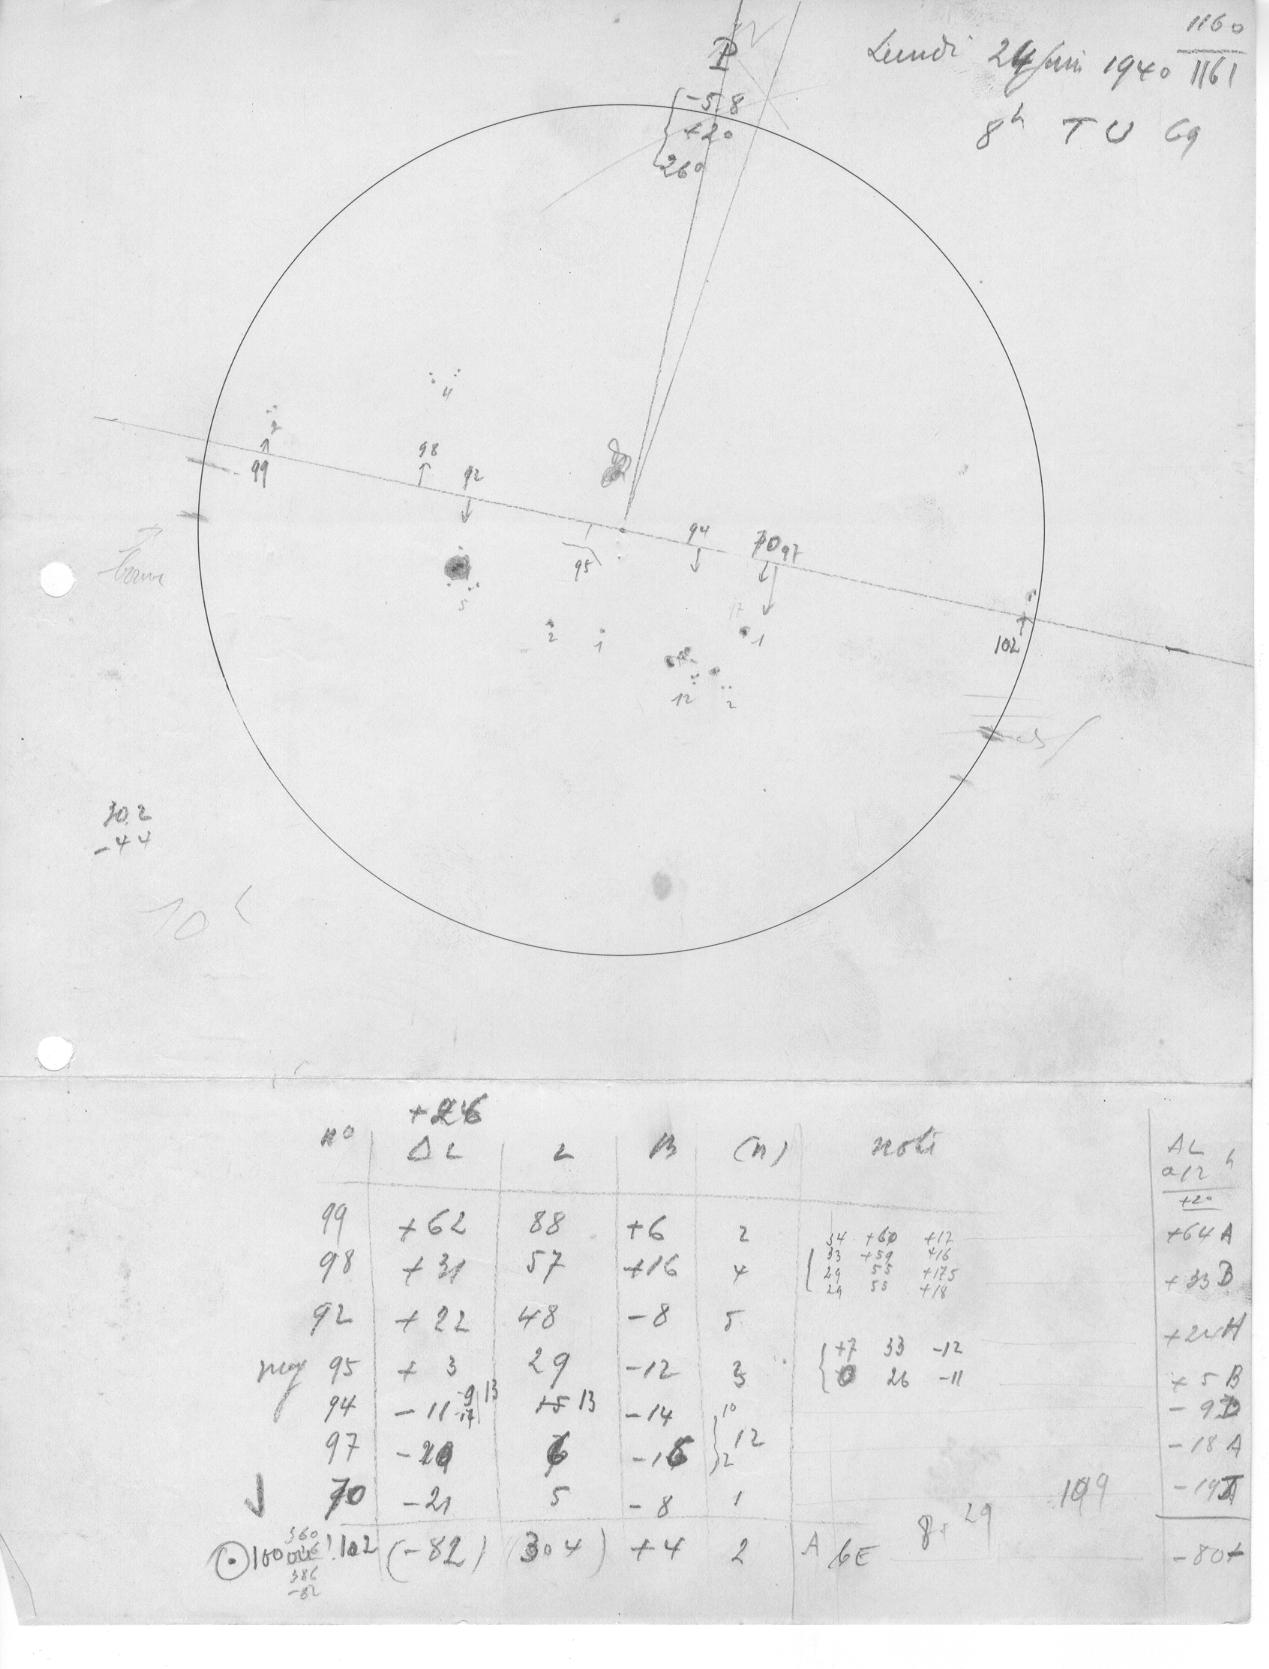 1160
Lundi 24 Juin 1940 1161
8h TU 69
P
-5.8
+20
260
4
2
99
98
92
94
70 97
95
5
2
1
17
1
12
2
102
30.2
-44
10
+26
n° ΔL L B (n) note
ΔL
a 12 h
+20
99 +62 88 +6 2 +64 A
34 +60 +17
98 +31 57 +16 4 +33 B
33 +59 +16
29 55 +175
29 55 +18
92 +22 48 -8 5 +24 H
95 +3 29 -12 3 +5 B
+7 33 -12
0 26 -11
94 -11 -9 13 +5 13 -14 10 -9 D
-17
97 -20 6 -16 2 12 -18 A
70 -21 5 -8 1 -19 J
109
29
360
100 ou !102 (-82) (304) +4 2 A 6E -80
386
-82